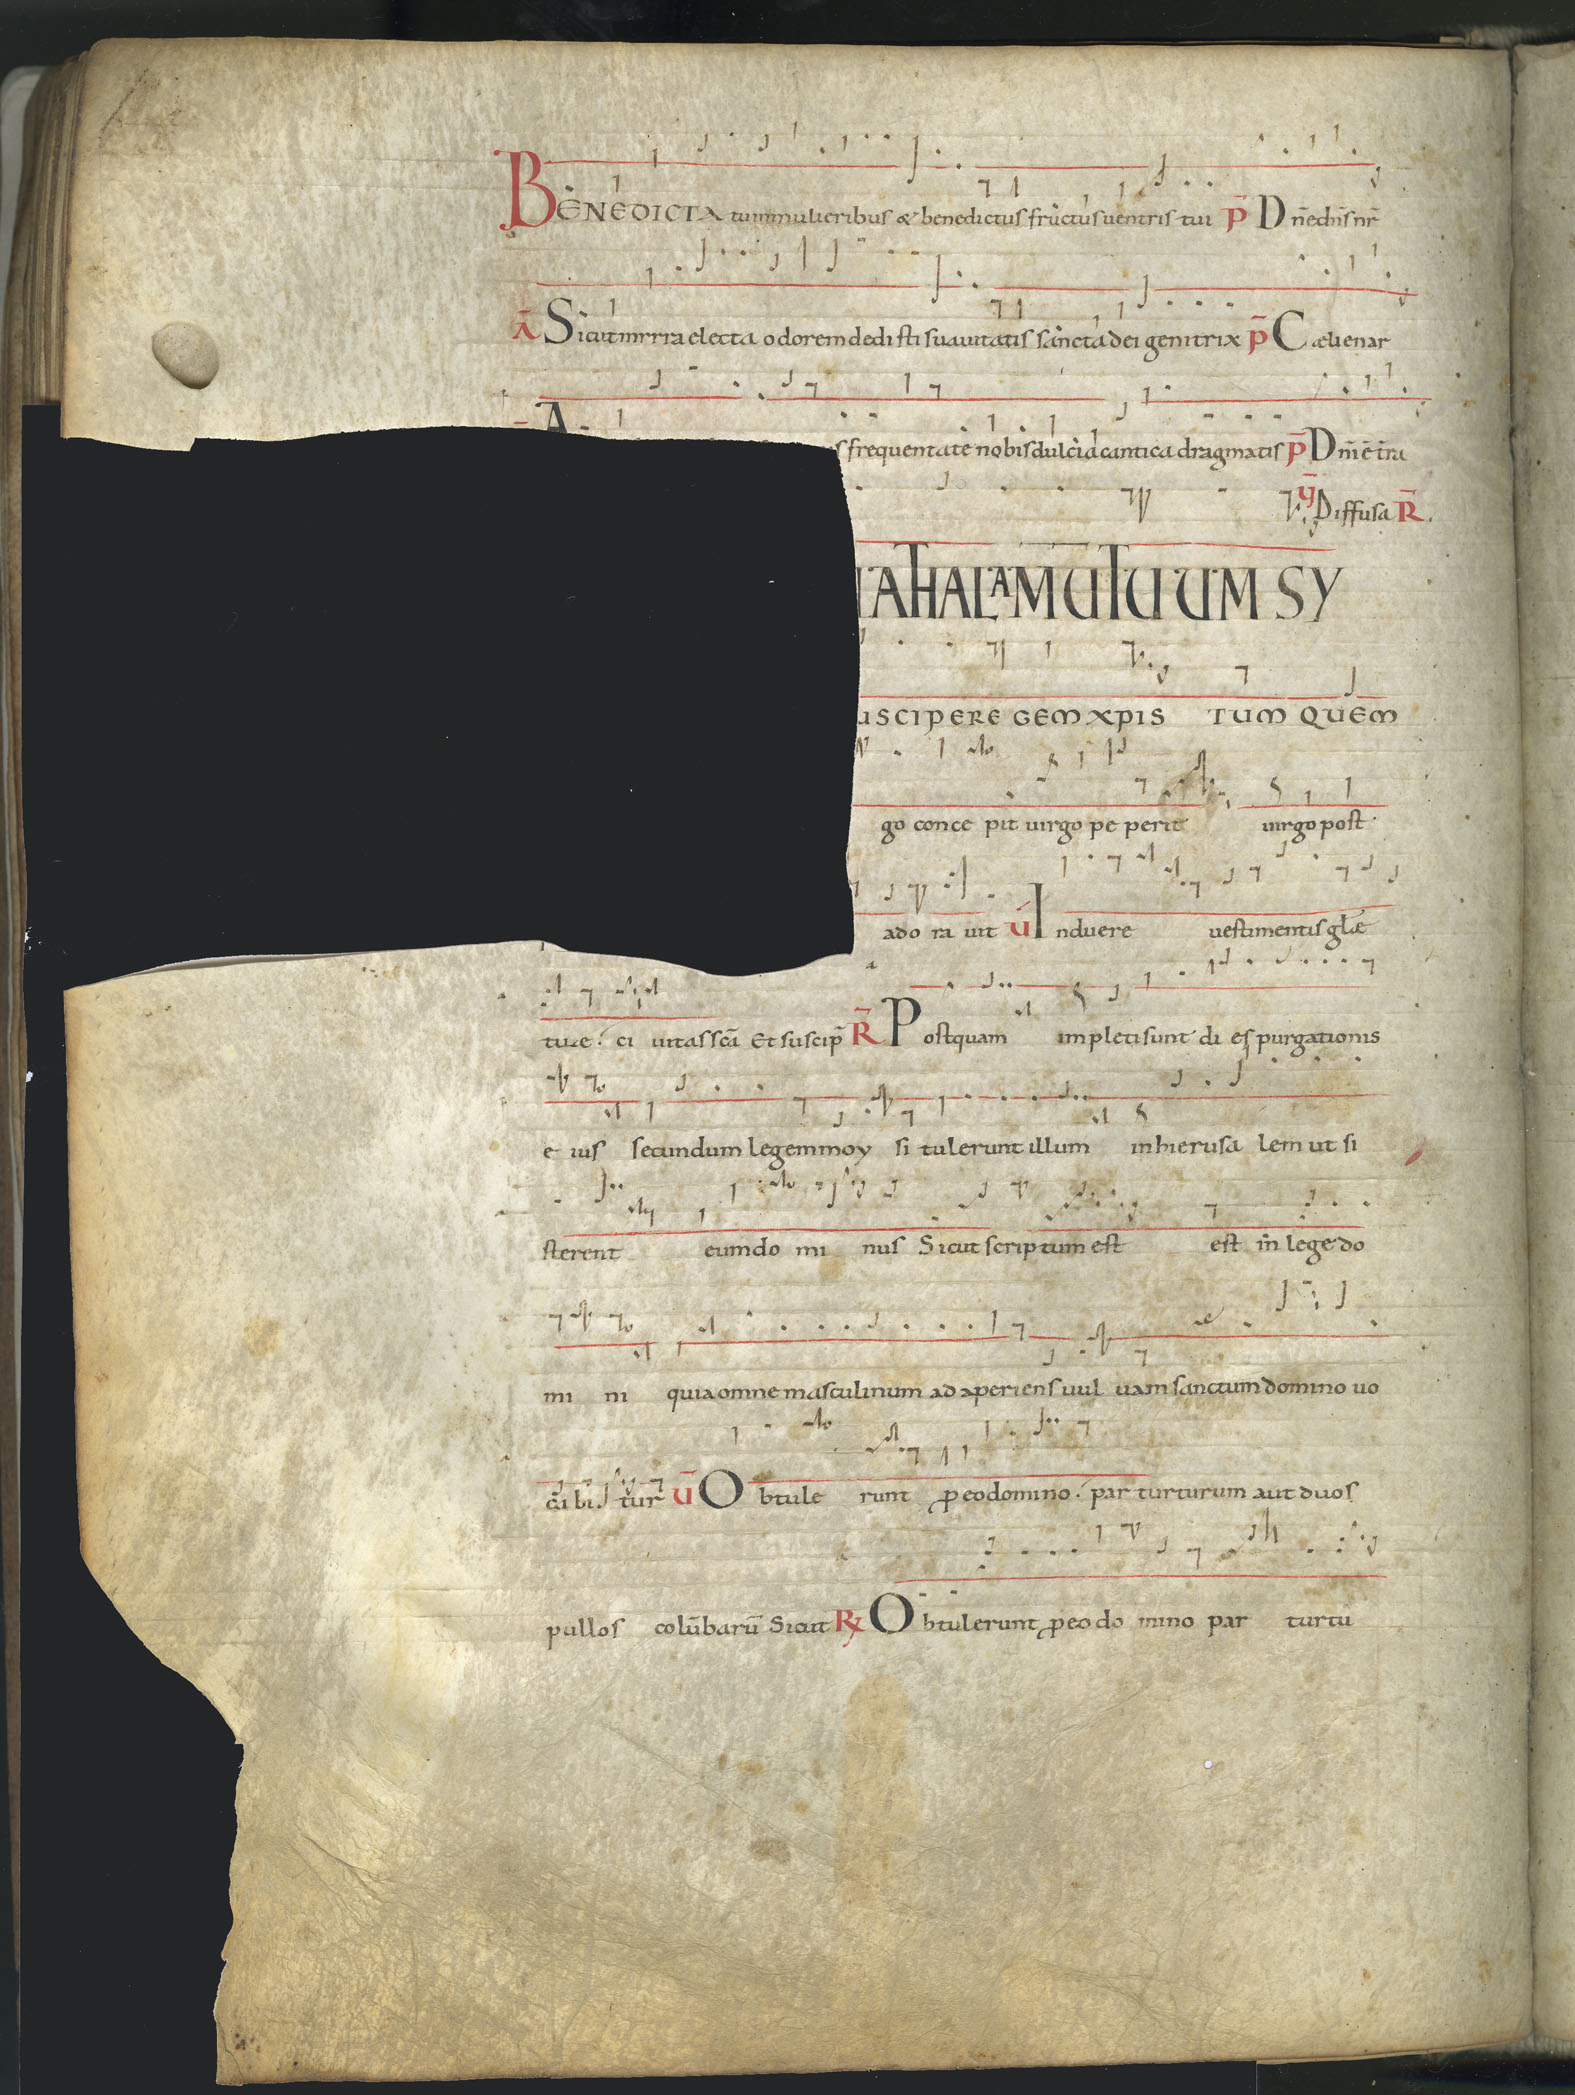 BENEDICTA tu in mulieribus & benedictus fructus uentris tui p̄ D n̄edn̄s nr̄
Ā Sicut mirra electa odorem dedisti suauitatis sancta dei genitrix p̄ Cæli enar
A s frequentate nobis dulcia cantica dragmatis p̄ Dn̄i ē tr̄a
Diffusa R̄.
AHALAMU TUUM SY
USCIPE REGEM XPIS TUM QUEM
go conce pit uirgo pe perit uirgo post
ado ra uit ū Induere uestimentis gl̄æ
tuæ. ci uitas sc̄a Et suscip̄ R̄ Postquam impleti sunt di es purgationis
e ius secundum legem moy si tulerunt illum in hierusa lem ut si
sterent eum do mi nus Sicut scriptum est est in lege do
mi ni quia omne masculinum ad aperiens uul uam sanctum domino uo
ca bi tur ū Obtule runt ꝓ eo domino. par turturum aut duos
pullos colūbarū Sicut R Obtulerunt ꝓ eo do mino par turtu